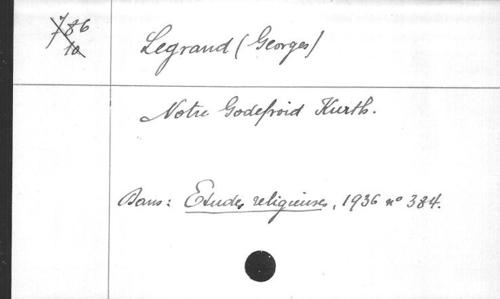 786
10
Legrand (Georges)
Notre Godefroid Kurth.
Dans: Etudes religieuses, 1936 nº 384.